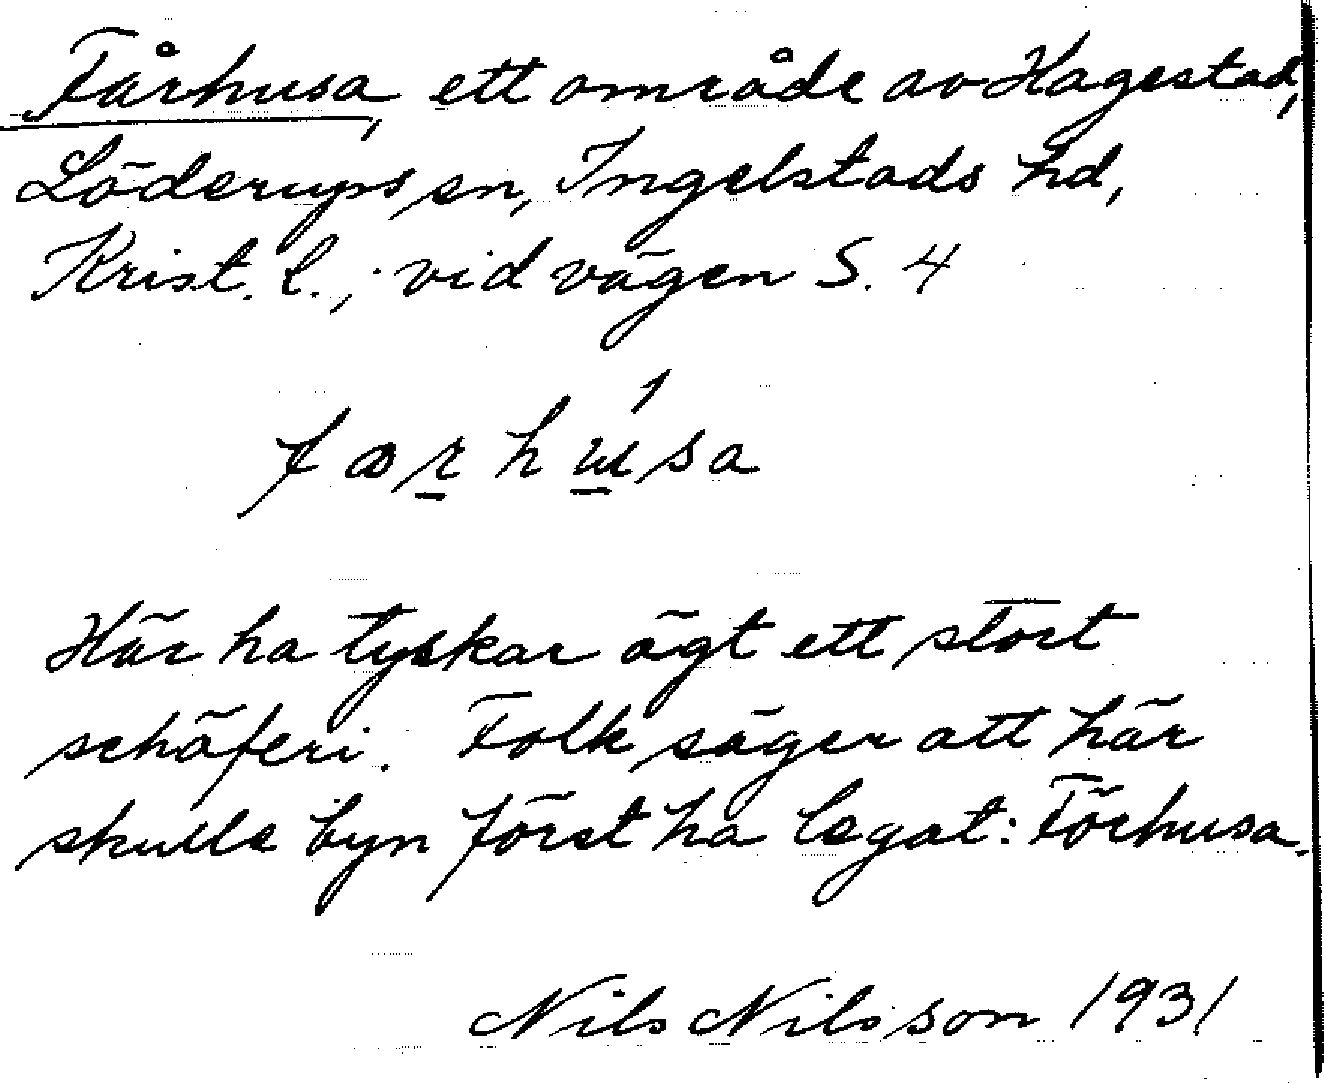 Fårhusa, ett område av Hagestad,
Löderups sn, Ingelstads hd,
Krist. L., vid vägen S. 4
færhusa
Här ha tyskar ägt ett stort
schäferi. Folk säger att här
skulle byn först ha legat: Förhusa.
Nils Nilsson 1931